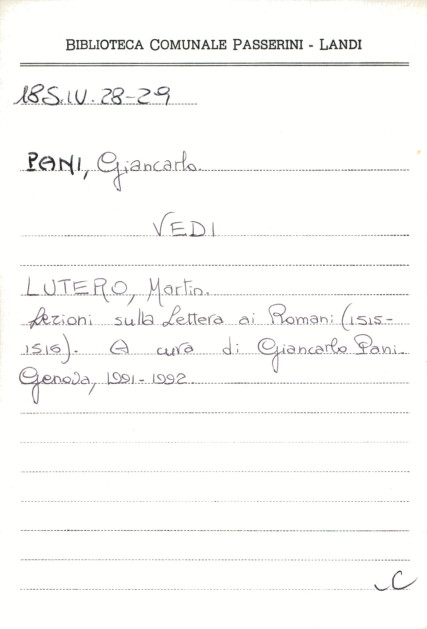 BIBLIOTECA COMUNALE PASSERINI - LANDI
18S.IV.28-29
PANI, Giancarlo.
VEDI
LUTERO, Martin.
Lezioni sulla Lettera ai Romani (1515-
1516). A cura di Giancarlo Pani.
Genova, 1991-1992
C